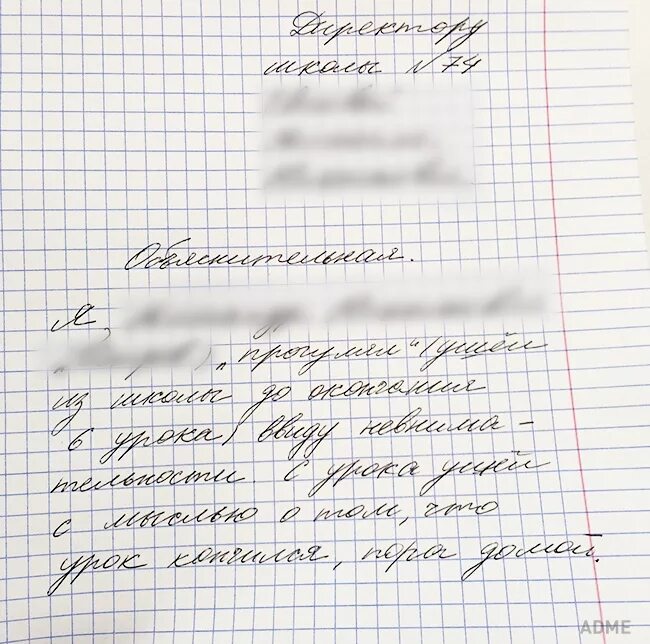 Директору
школы № 74
Объяснительная.
Я,
„прогулял“ (ушёл
из школы до окончания
6 урока) ввиду невнима-
тельности. С урока ушёл
с мыслью о том, что
урок кончился, пора домой.
ADME